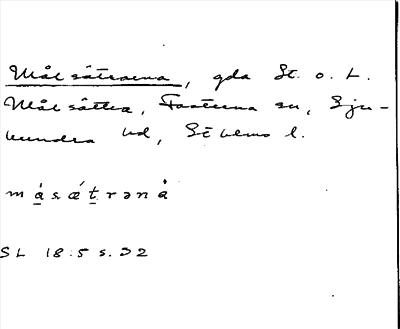 Målsätrarna, gda St. o. L.
Målsättra, Fasterna sn, Sju-
hundra hd, Sthlms l.
m å s æ t r ə n å
SL 18:5 s. 32